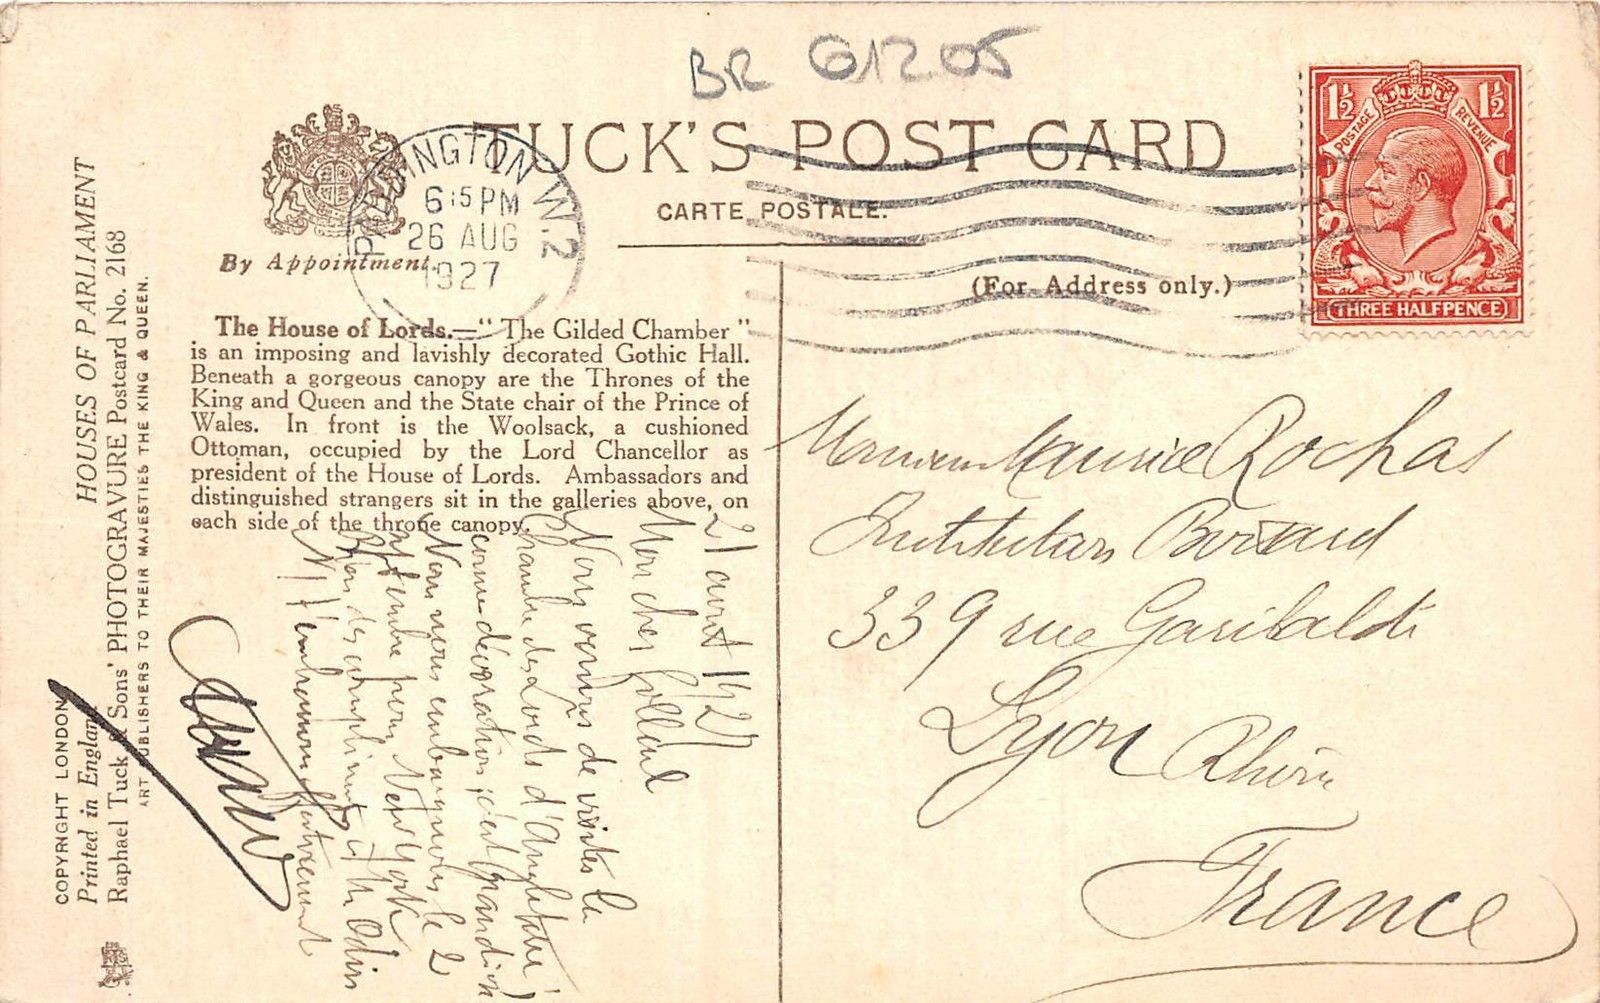 BR 61205
TUCK'S POST CARD
CARTE POSTALE.
(For Address only.)
By Appointment.
PADDINGTON W.2
6 15 PM
26 AUG
1927
1½ 1½
POSTAGE REVENUE
THREE HALFPENCE
The House of Lords.—"The Gilded Chamber"
is an imposing and lavishly decorated Gothic Hall.
Beneath a gorgeous canopy are the Thrones of the
King and Queen and the State chair of the Prince of
Wales. In front is the Woolsack, a cushioned
Ottoman, occupied by the Lord Chancellor as
president of the House of Lords. Ambassadors and
distinguished strangers sit in the galleries above, on
each side of the throne canopy.
HOUSES OF PARLIAMENT
Raphael Tuck & Sons' PHOTOGRAVURE Postcard No. 2168
ART PUBLISHERS TO THEIR MAJESTIES THE KING & QUEEN.
COPYRIGHT LONDON
Printed in England
Mon cher
Nous venons de visiter la
Chambre des Lords d'Angleterre
comme décoration c'est
Nous nous embarquons le 2
septembre pour New York
des compliments
Maurice Rochas
Institution
339 rue Garibaldi
Lyon Rhône
France